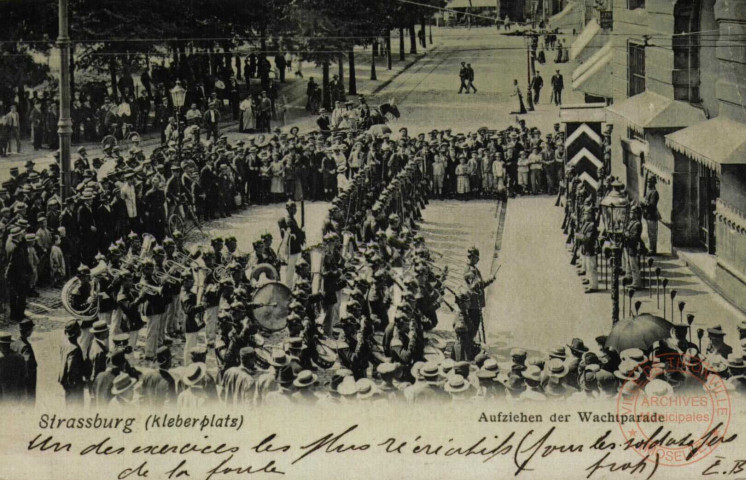 Strassburg (Kleberplatz)
Aufziehen der Wachtparade
Un des exercices les plus récréatifs (pour les soldats
de la foule
E.B
Archives
Municipales